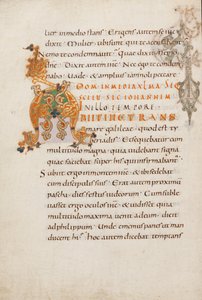 uiter inmedio stans Erigens autem se ihs
dixit Mulier ubi sunt qui te accusant
Nemo te condemnauit Quae dixit
Nemo dne Dixit autem ihs Nec ego te con
demnabo Uade & amplius iam noli peccare
DOM IN MEDIA XLMA
SCI EU SEC IOHANNEM
IN ILLO TEMPORE
ABIIT IHC TRANS
mare galileae quod est ty
beriadis Et sequebatur eum
multitudo magna quia uidebant signa
quae faciebat super his qui infirmabantur
Subiit ergo in montem ihs & ibi sedebat
cum discipulis suis Erat autem proximum
pascha dies festus iudaeorum Cum subleua
uisset ergo oculos ihs & uidisset quia
multitudo maxima uenit ad eum dicit
ad philippum Unde ememus panes ut man
ducent hi Hoc autem dicebat temptans